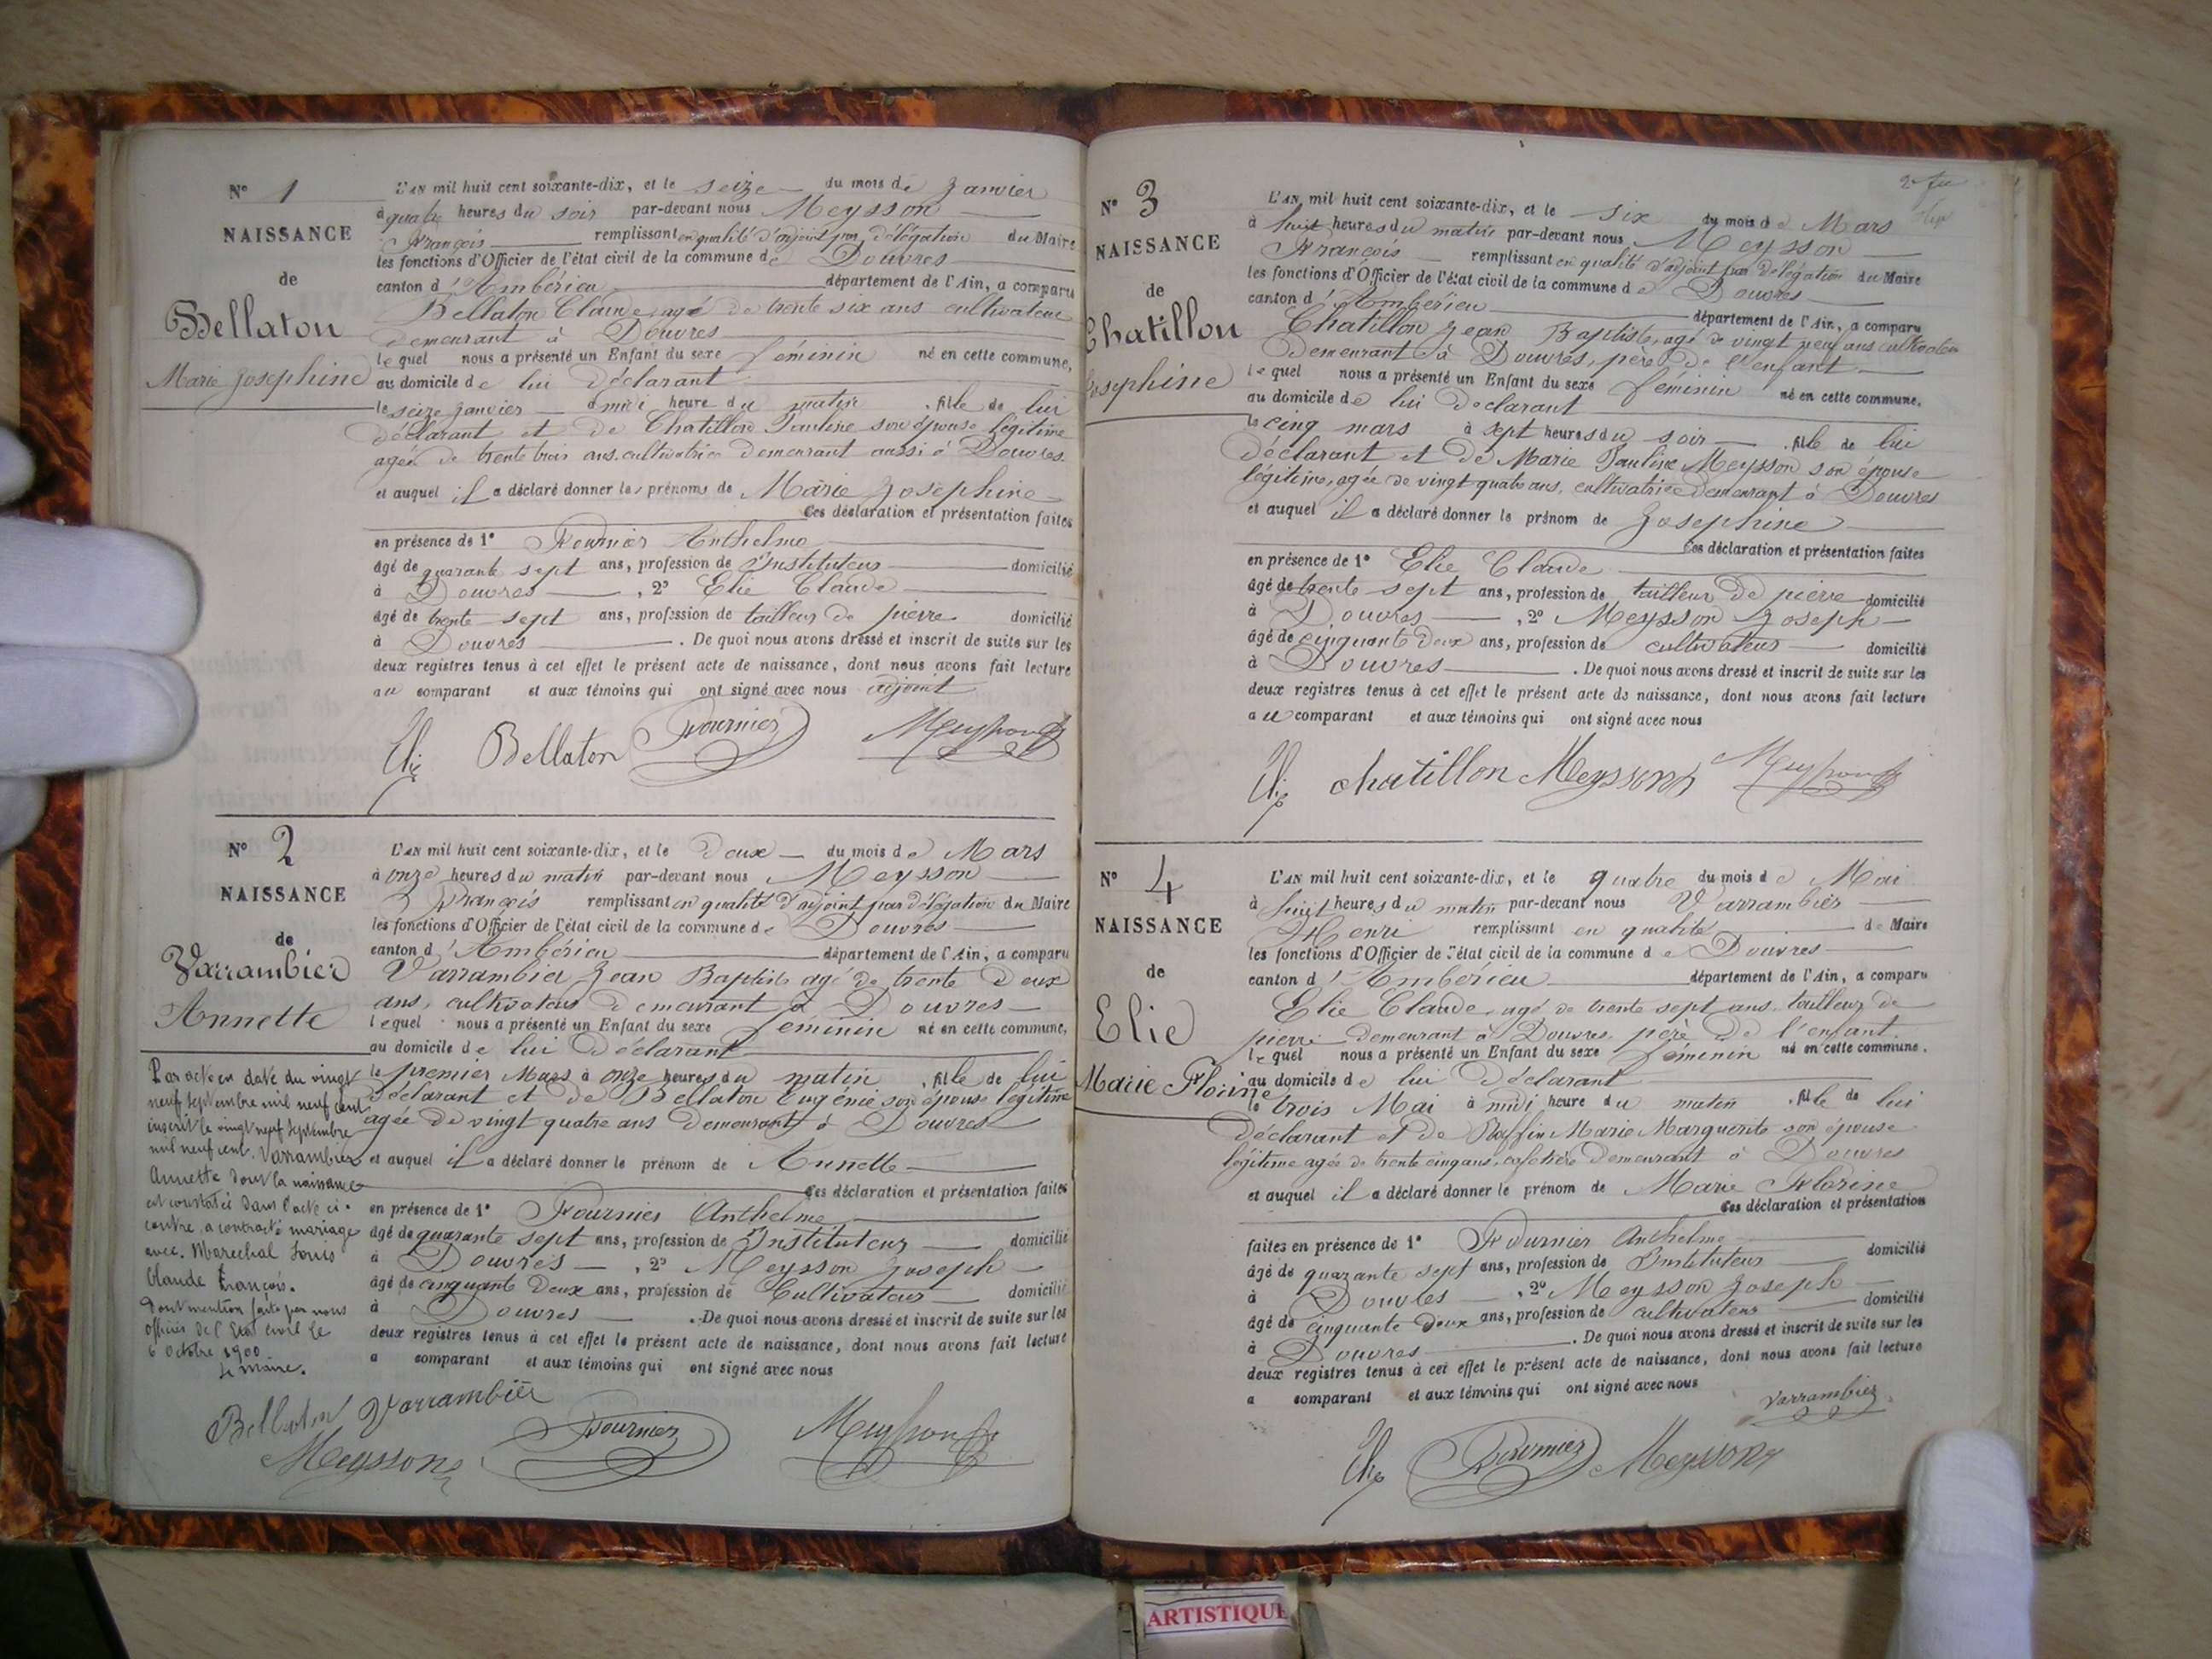 N° 1
NAISSANCE
de
Bellaton
Marie Josephine
L'AN mil huit cent soixante-dix, et le seize du mois de Janvier
à quatre heures du soir par-devant nous Meysson
François remplissant en qualité d'adjoint par délégation du Maire
les fonctions d'Officier de l'état civil de la commune de Douvres
canton d'Ambérieu département de l'Ain, a comparu
Bellaton Claude, agé de trente six ans cultivateur
demeurant à Douvres
le quel nous a présenté un Enfant du sexe féminin né en cette commune,
au domicile de lui déclarant
le seize Janvier à midi heure du matin, fille de lui
déclarant et de Chatillon Pauline son épouse légitime
agée de trente trois ans, cultivatrice demeurant aussi à Douvres.
et auquel il a déclaré donner les prénoms de Marie Josephine
Ces déclaration et présentation faites
en présence de 1° Fournier Anthelme
âgé de quarante sept ans, profession de Instituteur domicilié
à Douvres, 2° Elie Claude
âgé de trente sept ans, profession de tailleur de pierre domicilié
à Douvres. De quoi nous avons dressé et inscrit de suite sur les
deux registres tenus à cet effet le présent acte de naissance, dont nous avons fait lecture
au comparant et aux témoins qui ont signé avec nous adjoint
Elie Bellaton Fournier Meysson
N° 2
NAISSANCE
de
Varrambier
Annette
Par acte en date du vingt
neuf septembre mil neuf cent
inscrit le vingt neuf septembre
mil neuf cent, Varrambier
Annette dont la naissance
est constatée dans l'acte ci-
contre, a contracté mariage
avec Marechal Louis
Claude François.
Dont mention faite par nous
officier de l'Etat civil le
6 Octobre 1900
Le Maire.
L'AN mil huit cent soixante-dix, et le deux du mois de Mars
à onze heures du matin par-devant nous Meysson
François remplissant en qualité d'adjoint par délégation du Maire
les fonctions d'Officier de l'état civil de la commune de Douvres
canton d'Ambérieu département de l'Ain, a comparu
Varrambier Jean Baptiste agé de trente deux
ans, cultivateur demeurant à Douvres
lequel nous a présenté un Enfant du sexe féminin né en cette commune,
au domicile de lui déclarant
le premier Mars à onze heures du matin, fille de lui
déclarant et de Bellaton Eugénie son épouse légitime
agée de vingt quatre ans demeurant à Douvres
et auquel il a déclaré donner le prénom de Annette
Ces déclaration et présentation faites
en présence de 1° Fournier Anthelme
âgé de quarante sept ans, profession de Instituteur domicilié
à Douvres, 2° Meysson Joseph
âgé de cinquante deux ans, profession de Cultivateur domicilié
à Douvres. De quoi nous avons dressé et inscrit de suite sur les
deux registres tenus à cet effet le présent acte de naissance, dont nous avons fait lecture
a comparant et aux témoins qui ont signé avec nous
Bellaton Varrambier
Meysson Fournier Meysson
N° 3
NAISSANCE
de
Chatillon
Josephine
L'AN mil huit cent soixante-dix, et le six du mois de Mars
à huit heures du matin par-devant nous Meysson
François remplissant en qualité d'adjoint par délégation du Maire
les fonctions d'Officier de l'état civil de la commune de Douvres
canton d'Ambérieu département de l'Ain, a comparu
Chatillon Jean Baptiste, agé de vingt neuf ans cultivateur
demeurant à Douvres, père de l'enfant
lequel nous a présenté un Enfant du sexe féminin né en cette commune,
au domicile de lui déclarant
le cinq mars à sept heures du soir, fille de lui
déclarant et de Marie Pauline Meysson son épouse
légitime, agée de vingt quatre ans, cultivatrice demeurant à Douvres
et auquel il a déclaré donner le prénom de Josephine
Ces déclaration et présentation faites
en présence de 1° Elie Claude
âgé de trente sept ans, profession de tailleur de pierre domicilié
à Douvres, 2° Meysson Joseph
âgé de cinquante deux ans, profession de cultivateur domicilié
à Douvres. De quoi nous avons dressé et inscrit de suite sur les
deux registres tenus à cet effet le présent acte de naissance, dont nous avons fait lecture
au comparant et aux témoins qui ont signé avec nous
Elie chatillon Meysson Meysson
N° 4
NAISSANCE
de
Elie
Marie Florine
L'AN mil huit cent soixante-dix, et le quatre du mois de Mai
à huit heures du matin par-devant nous Varrambier
Henri remplissant en qualité de Maire
les fonctions d'Officier de l'état civil de la commune de Douvres
canton d'Ambérieu département de l'Ain, a comparu
Elie Claude, agé de trente sept ans, tailleur de
pierre demeurant à Douvres, père de l'enfant
lequel nous a présenté un Enfant du sexe féminin né en cette commune,
au domicile de lui déclarant
le trois Mai à midi heure du matin, fille de lui
déclarant et de Raffin Marie Marguerite son épouse
légitime agée de trente cinq ans, demeurant à Douvres
et auquel il a déclaré donner le prénom de Marie Florine
Ces déclaration et présentation
faites en présence de 1° Fournier Anthelme
âgé de quarante sept ans, profession de Instituteur domicilié
à Douvres, 2° Meysson Joseph
âgé de cinquante deux ans, profession de cultivateur domicilié
à Douvres. De quoi nous avons dressé et inscrit de suite sur les
deux registres tenus à cet effet le présent acte de naissance, dont nous avons fait lecture
a comparant et aux témoins qui ont signé avec nous
Varrambier
Elie Fournier Meysson
ARTISTIQUE